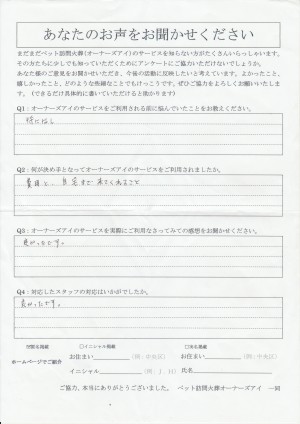 あなたのお声をお聞かせください
まだまだペット訪問火葬(オーナーズアイ)のサービスを知らない方がたくさんいらっしゃいます。
その方たちに少しでも知っていただくためにアンケートにご協力いただけないでしょうか。
あなた様のご意見をお聞かせいただき、今後の活動に反映したいと考えています。よかったこと、
嬉しかったこと、どのような些細なことでもけっこうです。ぜひご協力をよろしくお願いいたしま
す。（できるだけ具体的に書いていただけると助かります）
Q1：オーナーズアイのサービスをご利用される前に悩んでいたことをお教えください。
特になし
Q2：何が決め手となってオーナーズアイのサービスをご利用されましたか。
費用と、自宅まで来てくれること
Q3：オーナーズアイのサービスを実際にご利用なさってみての感想をお聞かせください。
良かったです。
Q4：対応したスタッフの対応はいかがでしたか。
良かったです。
○イニシャル掲載 ○実名掲載
ホームページでご紹介 お住まい （例：中央区） お住まい （例：中央区）
イニシャル （例：J．H） 氏名
ご協力、本当にありがとうございました。 ペット訪問火葬オーナーズアイ 一同